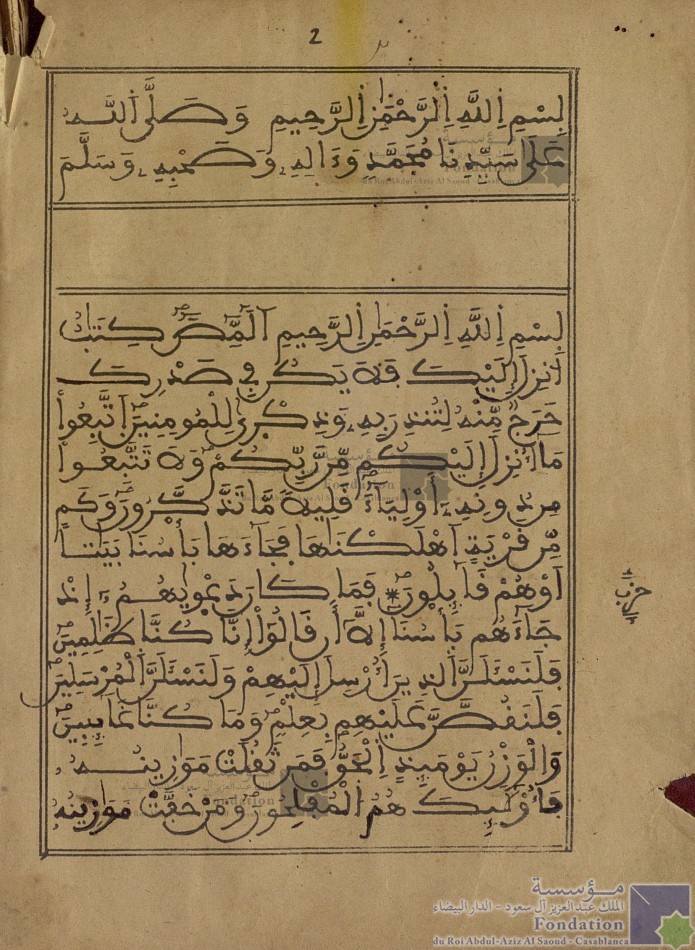 2
بِسْمِ اِللَّهِ اِلرَّحْمَٰنِ اِلرَّحِيمِ وَصَلَّى اَللَّهُ
عَلَى سَيِّدِنَا مُحَمَّدٍ وَءَالِهِ وَصَحْبِهِ وَسَلَّمَ
بِسْمِ اِللَّهِ اِلرَّحْمَٰنِ اِلرَّحِيمِ أَلَٓمِّٓصَٓ كِتَٰبٌ
اُنزِلَ إِلَيْكَ فَلَا يَكُن فِي صَدْرِكَ
حَرَجٌ مِّنْهُ لِتُنذِرَ بِهِ وَذِكْرَىٰ لِلْمُومِنِينَ اَتَّبِعُواْ
مَا أُنزِلَ إِلَيْكُم مِّن رَّبِّكُمْ وَلَا تَتَّبِعُواْ
مِن دُونِهِ أَوْلِيَآءَ قَلِيلاً مَّا تَذَّكَّرُونَ وَكَم
مِّن قَرْيَةٍ اَهْلَكْنَٰهَا فَجَآءَهَا بَأْسُنَا بَيَٰتاً
اَوْ هُمْ قَآئِلُونَ * فَمَا كَانَ دَعْوَىٰهُمُ إِذْ
جَآءَهُم بَأْسُنَا إِلَّا أَن قَالُواْ إِنَّا كُنَّا ظَٰلِمِينَ
فَلَنَسْـَٔلَنَّ اَلذِينَ أُرْسِلَ إِلَيْهِمْ وَلَنَسْـَٔلَنَّ اَلْمُرْسَلِينَ
فَلَنَقُصَّنَّ عَلَيْهِم بِعِلْمٍ وَمَا كُنَّا غَآئِبِينَ
وَالْوَزْنُ يَوْمَئِذٍ اِلْحَقُّ فَمَن ثَقُلَتْ مَوَٰزِينُهُ
فَأُوْلَٰئِكَ هُمُ اُلْمُفْلِحُونَ وَمَنْ خَفَّتْ مَوَٰزِينُهُ
حزب
مؤسسة
الملك عبد العزيز آل سعود - الدار البيضاء
Fondation
du Roi Abdul-Aziz Al Saoud - Casablanca